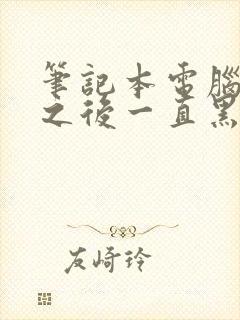 筆記本電腦
之後一直黑
友崎玲